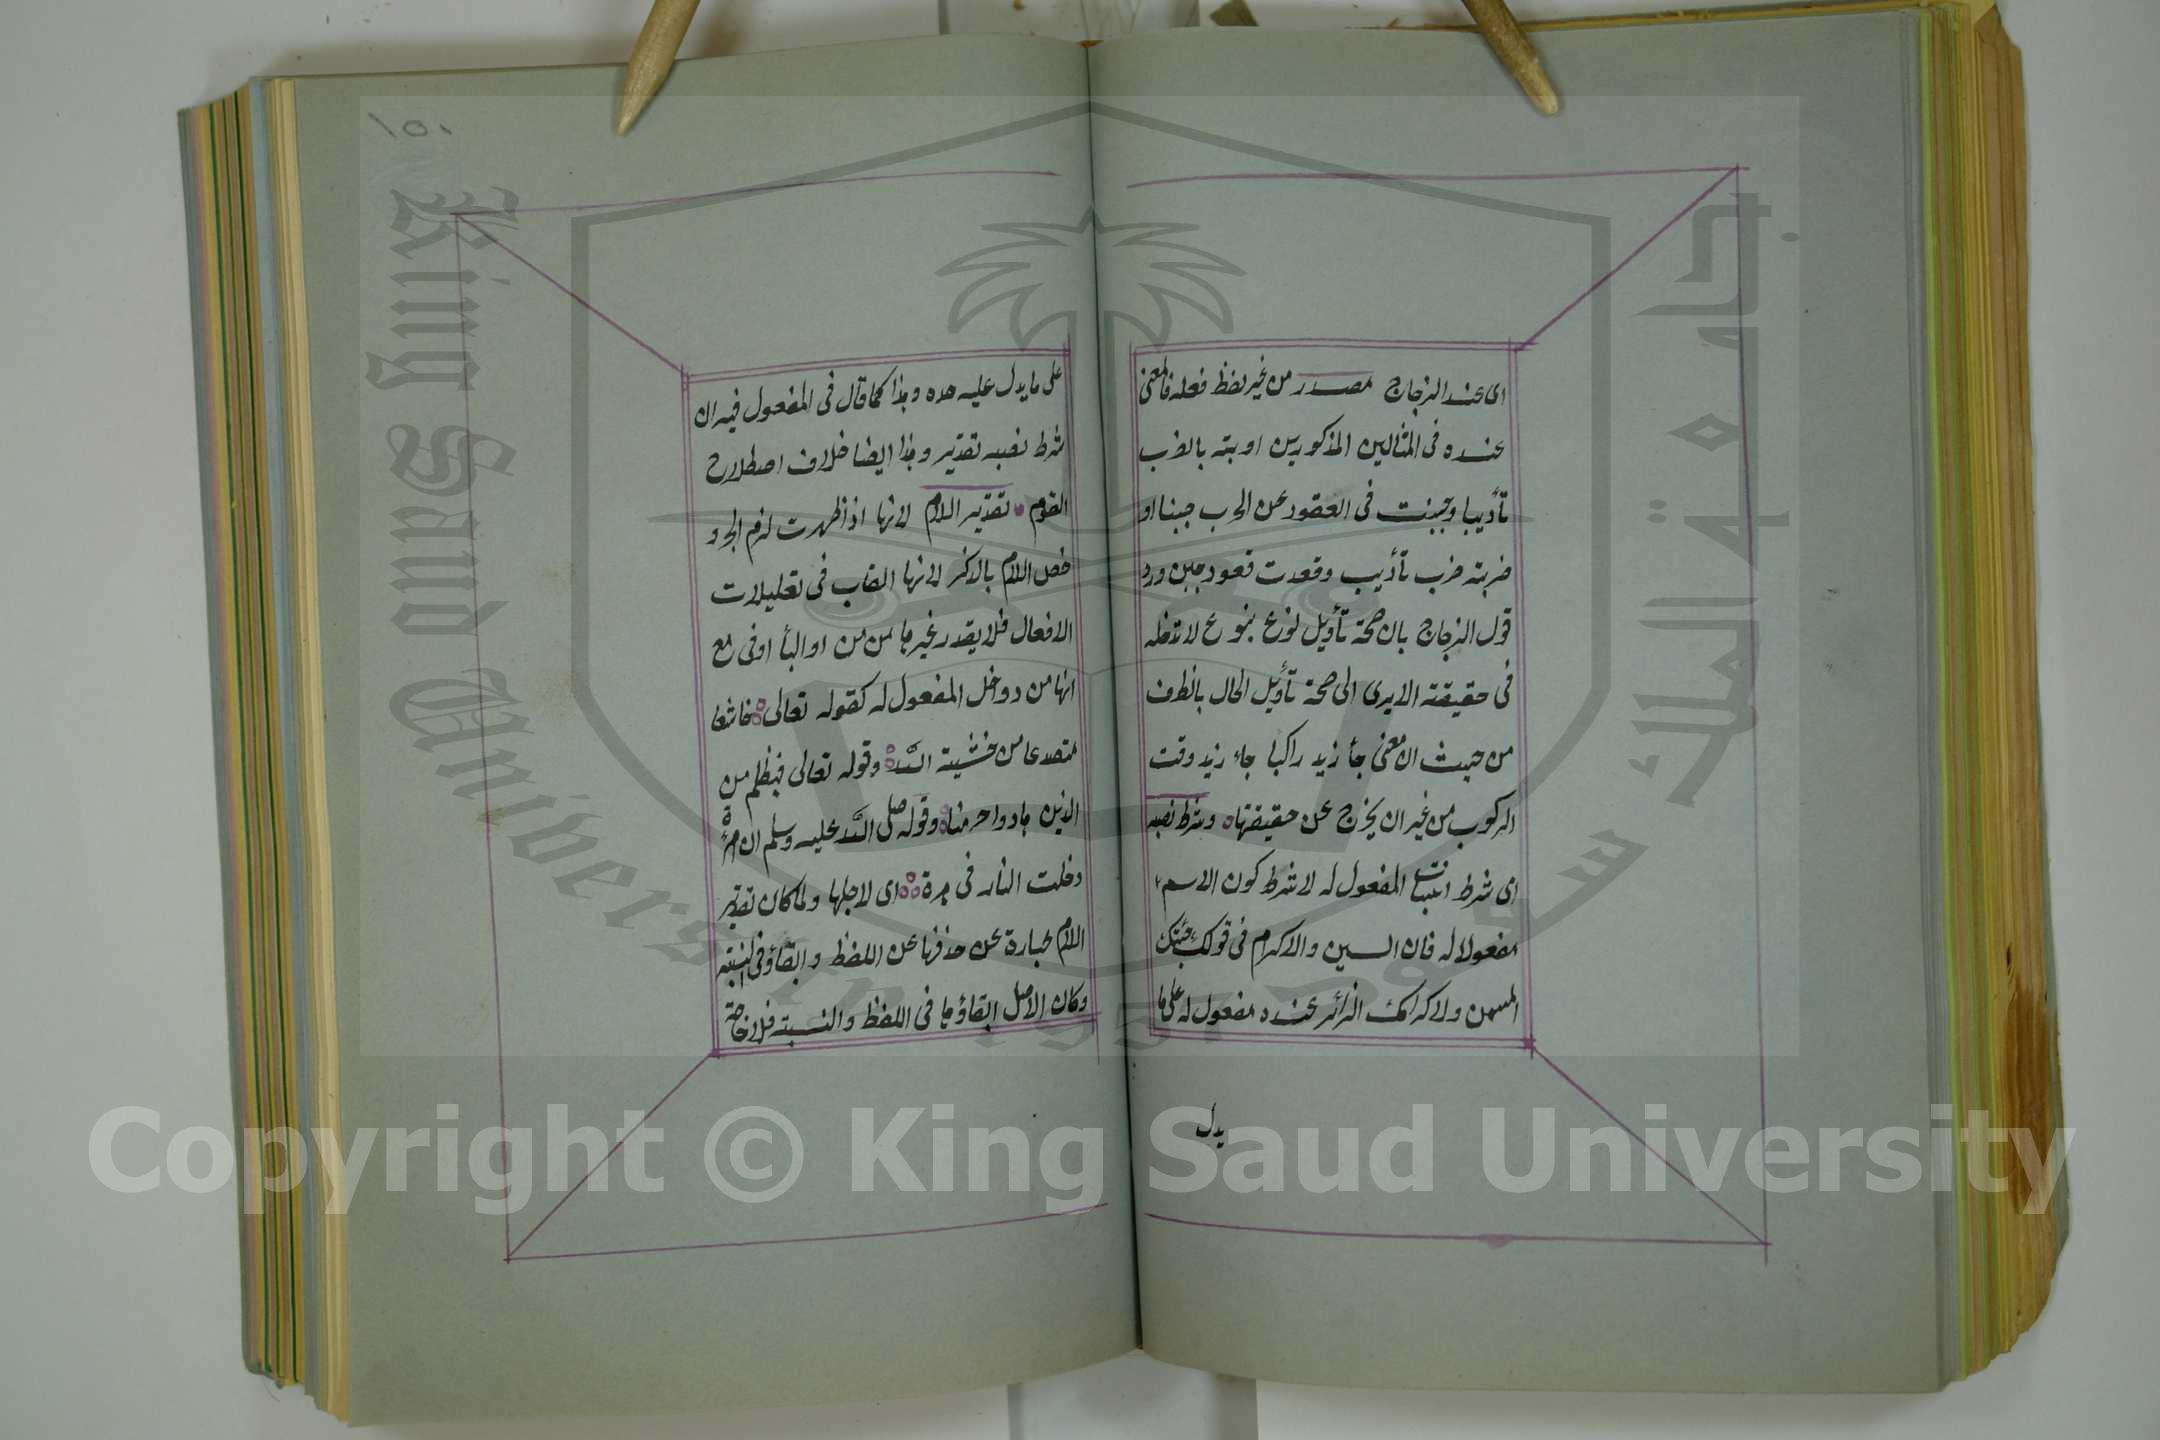 اى عند الزجاج مصدر من غير لفظ فعله فالمعنى
عنده فى المثالين المذكورين ادبته بالضرب
تأديبا وجبنت فى القعود عن الحرب جبنا او
ضربته ضرب تأديب وقعدت قعود جبن ورد
قول الزجاج بان صحة تأويل نوع بنوع لا تدخله
فى حقيقته الا يرى الى صحة تأويل الحال بالظرف
من حيث ان معنى جأ زيد راكبا جاء زيد وقت
الركوب من غير ان يخرج عن حقيقتها وشرط نصبه
اى شرط انتصاب المفعول له لا شرط كون الاسم
مفعولا له فان السمن والاكرام فى قولك جئتك
للسمن ولاكرامك الزائر عنده مفعول له على ما
يدل
١٥٠
على ما يدل عليه حده وهذا كما قال فى المفعول فيه ان
شرط نصبه تقدير وهذا ايضا خلاف اصطلاح
القوم تقدير اللام لانها اذا ظهرت لزم الجر و
خص اللام بالذكر لانها الغالب فى تعليلات
الافعال فلا يقدر غيرها من من او البأ او فى مع
انها من دواخل المفعول له كقوله تعالى خاشعا
متصدعا من خشية الله وقوله تعالى فبظلم من
الذين هادوا حرمنا وقوله صلى الله عليه وسلم ان امرأة
دخلت النار فى هرة اى لاجلها ولما كان تقدير
اللام عبارة عن حذفها عن اللفظ وابقاؤه فى النية
وكان الاصل ابقاؤها فى اللفظ والنسبة فلا حاجة
King Saud University
جامعة الملك سعود
1957
Copyright © King Saud University